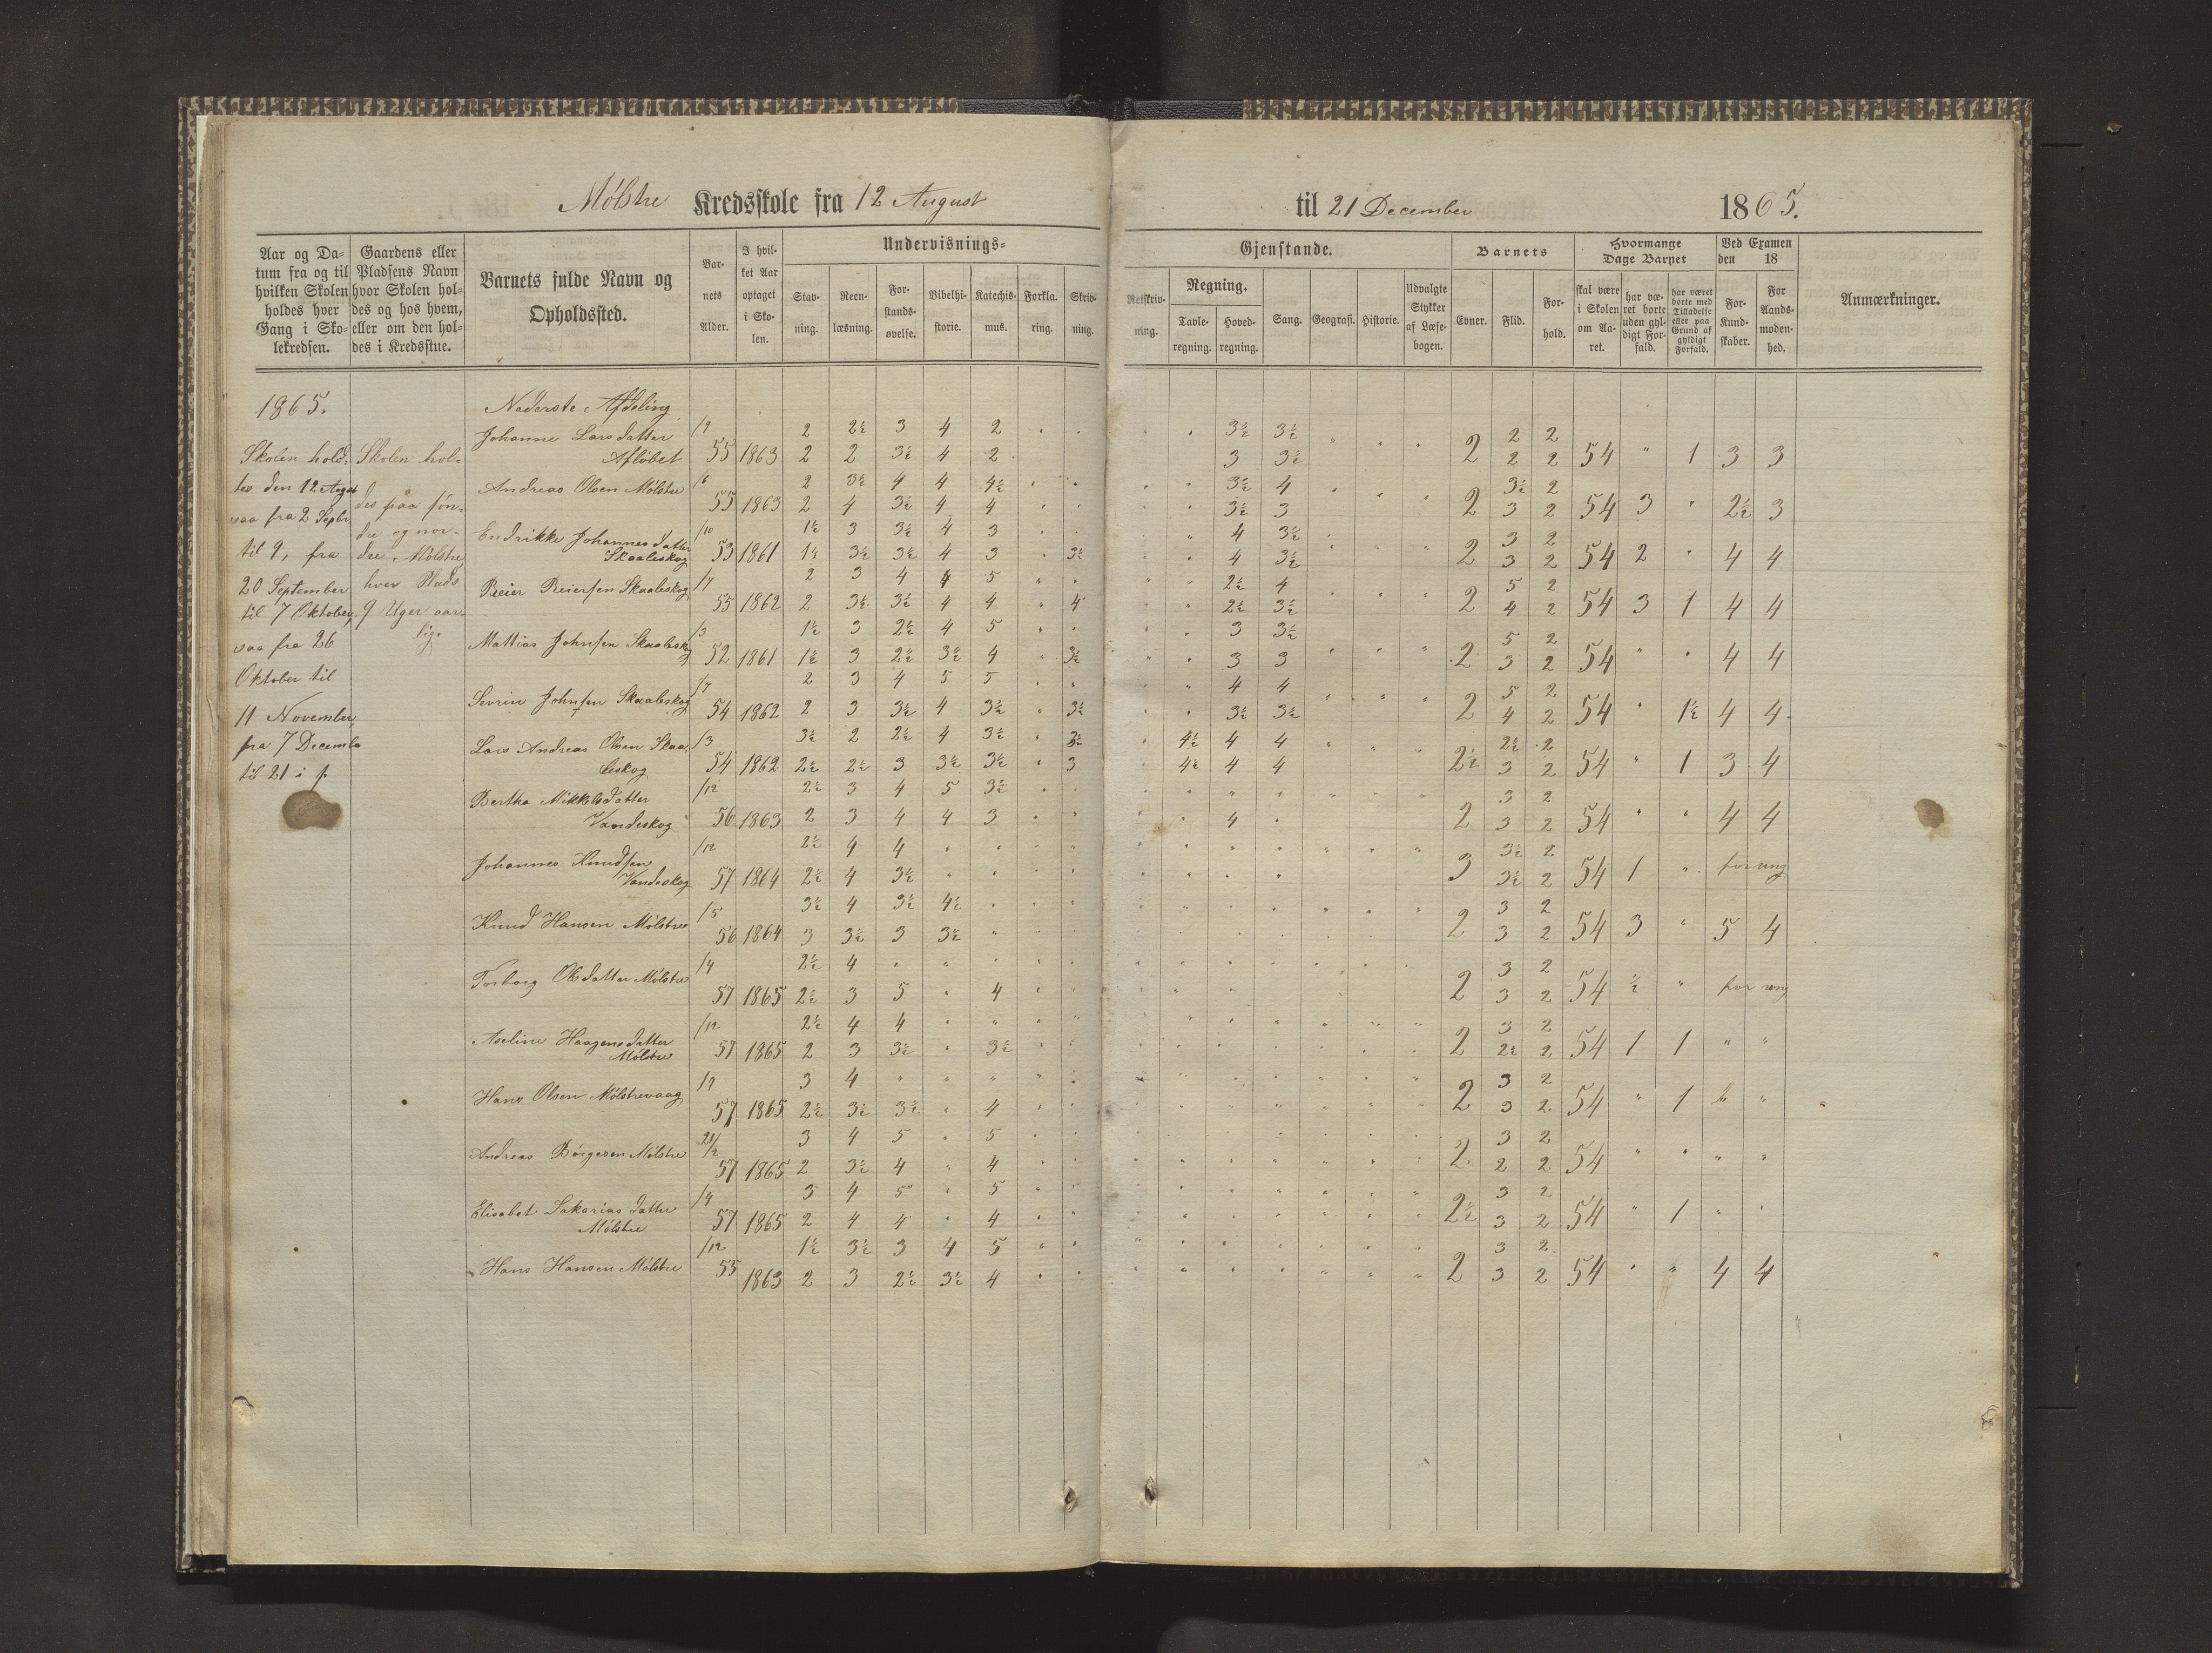 Mølstre Kredsskole fra 12 August til 21 December 1865.
Aar og Da-
tum fra og til
hvilken Skolen
holdes hver
Gang i Sko-
lekredsen.
Gaardens eller
Pladsens Navn
hvor Skolen hol-
des og hos hvem,
eller om den hol-
des i Kredsstue.
Barnets fulde Navn og
Opholdssted.
Bar-
nets
Alder.
I hvil-
ket Aar
optaget
i Sko-
len.
Undervisnings-
Stav-
ning.
Reen-
læsning.
For-
stands-
øvelse.
Bibelhi-
storie.
Katechis-
mus.
Forkla-
ring.
Skriv-
ning.
Gjenstande.
Retskriv-
ning.
Regning.
Tavle-
regning.
Hoved-
regning.
Sang.
Geografi.
Historie.
Udvalgte
Stykker
af Læse-
bogen.
Barnets
Evner.
Flid.
For-
hold.
Hvormange
Dage Barnet
skal være
i Skolen
om Aa-
ret.
har væ-
ret borte
uden gyl-
digt For-
fald.
har været
borte med
Tilladelse
eller paa
Grund af
gyldigt
Forfald.
Ved Examen
den 18
For
Kund-
skaber.
For
Aands-
moden-
hed.
Anmærkninger.
1865.
Skolen hold-
tes den 12 August
saa fra 2 Septbr
til 9, fra
20 September
til 7 Oktober,
saa fra 26
Oktober til
11 November,
fra 7 Decembe
til 21 i
Skolen hol-
des paa søn-
dre og nor-
dre Mølstre,
hver Plads
9 Uger aar-
lig.
Nederste Afdeling
/9 2 2½ 3 4 2 3½ 3½ 2 2
Johanne Larsdatter
Afløbet 55 1863 2 2 3½ 4 2 3 3½ 2 2 2 54 " 1 3 3
/6 2 3½ 4 4 4½ 3½ 4 3½ 2
Andreas Olsen Mølstre 55 1863 2 4 3½ 4 4 3½ 3 2 3 2 54 3 " 2½ 3
/10 1½ 3 3½ 4 3 4 3½ 3 2
Endrikke Johannesdatter
Skaaleskog 53 1861 1½ 3½ 3½ 4 3 3½ 4 3½ 2 3 2 54 2 " 4 4
/7 2 3 4 4 5 2½ 4 5 2
Reier Reiersen Skaaleskog 55 1862 2 3½ 3½ 4 4 4 2½ 3½ 2 4 2 54 3 1 4 4
/3 1½ 3 2½ 4 5 3 3½ 5 2
Mattias Johnsen Skaaleskog 52 1861 1½ 3 2½ 3½ 4 3½ 3 3 2 3 2 54 " " 4 4
/7 2 3 4 5 5 4 4 5 2
Sevrin Johnsen Skaaleskog 54 1862 2 3 3½ 4 3½ 3½ 3½ 3½ 2 4 2 54 " 1½ 4 4
/3 3½ 2 2½ 4 3½ 3½ 4½ 4 4 2½ 2
Lars Andreas Olsen Skaa-
leskog 54 1862 2½ 2½ 3 3½ 3½ 3 4½ 4 4 2½ 3 2 54 " 1 3 4
/12 2½ 3 4 5 3½ 3 2
Bertha Mikkelsdatter
Vandeskog 56 1863 2 3 4 4 3 4 2 3 2 54 " " 4 4
/12 2½ 4 4 3½ 2
Johannes Knudsen
Vandeskog 57 1864 2½ 4 3½ 3 3½ 2 54 1 " for ung
/5 3½ 4 3½ 4½ 3 2
Knud Hansen Mølstre 56 1864 3 3½ 3 3½ 2 3 2 54 3 " 5 4
/4 2½ 4 3 2
Torborg Olsdatter Mølstre 57 1865 2½ 3 5 " 4 2 3 2 54 ½ " for ung
/12 2½ 4 4 3 2
Aseline Haagensdatter
Mølstre 57 1865 2 3 3½ " 3½ 2 2½ 2 54 1 1 " "
/9 3 4 3 2
Hans Olsen Mølstrevaag 57 1865 2½ 3½ 3½ " 4 2 3 2 54 " 1 " "
21/2 3 4 5 " 5 3 2
Andreas Børgesen Mølstre 57 1865 2 3½ 4 " 4 2 2 2 54 " " " "
/4 3 4 5 " 5 3 2
Elisabet Sakariasdatter
Mølstre 57 1865 2 4 4 " 4 2½ 3 2 54 " 1 " "
/12 1½ 3½ 3 4 5 3 2
Hans Hansen Mølstre 55 1863 2 3 2½ 3½ 4 2 3 2 54 " " 4 4